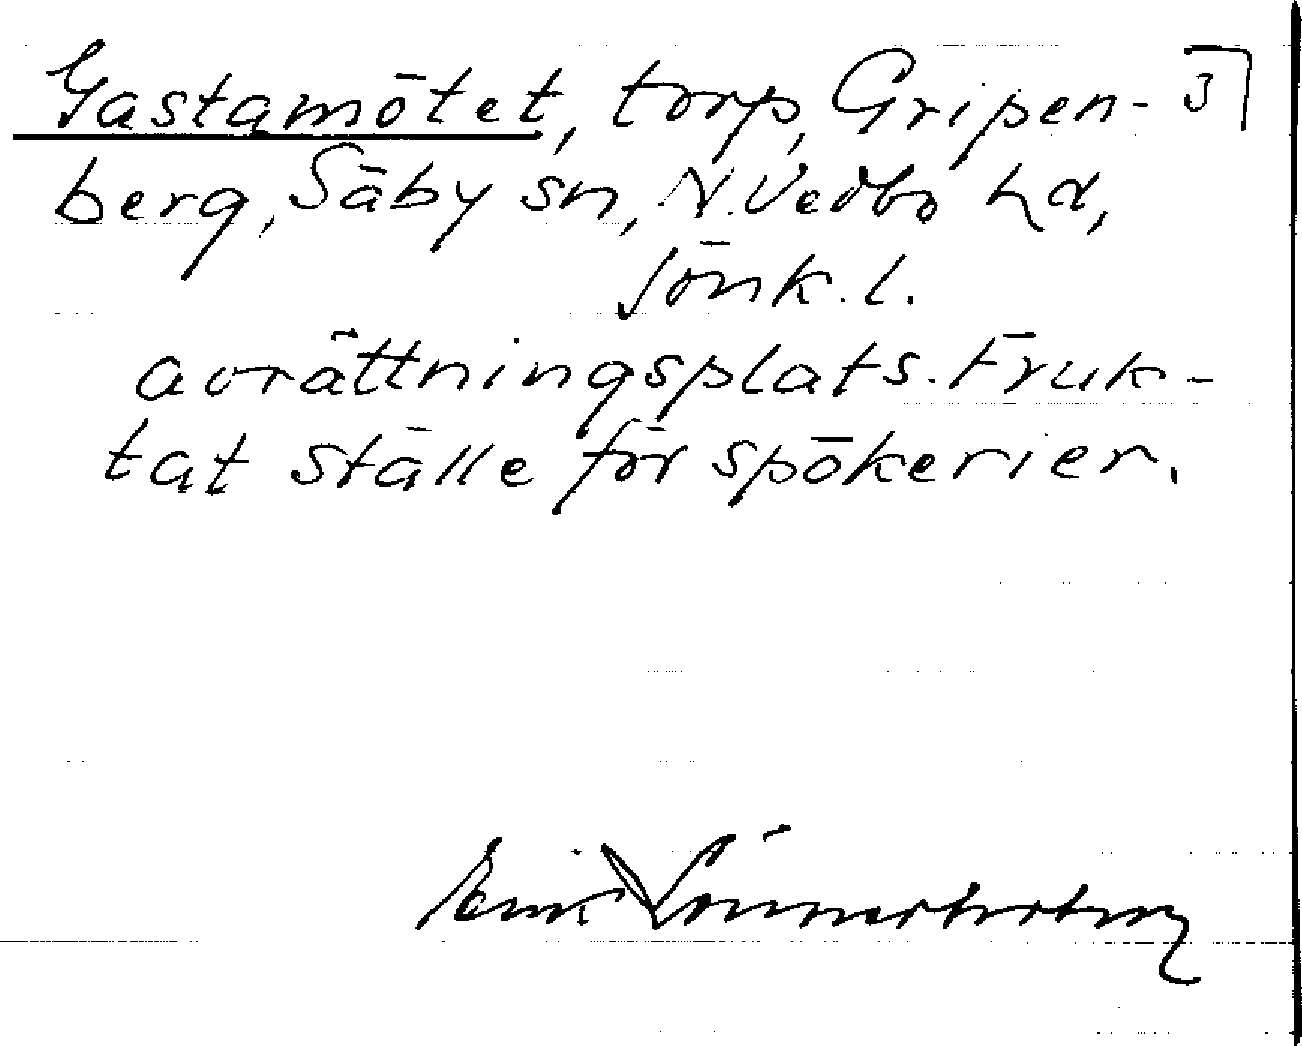 Gastamötet, torp, Gripen- 3
berg, Säby sn, N. Vedbo hd,
Jönk. l.
avrättningsplats. Fruk-
tat ställe för spökerier.
Erik